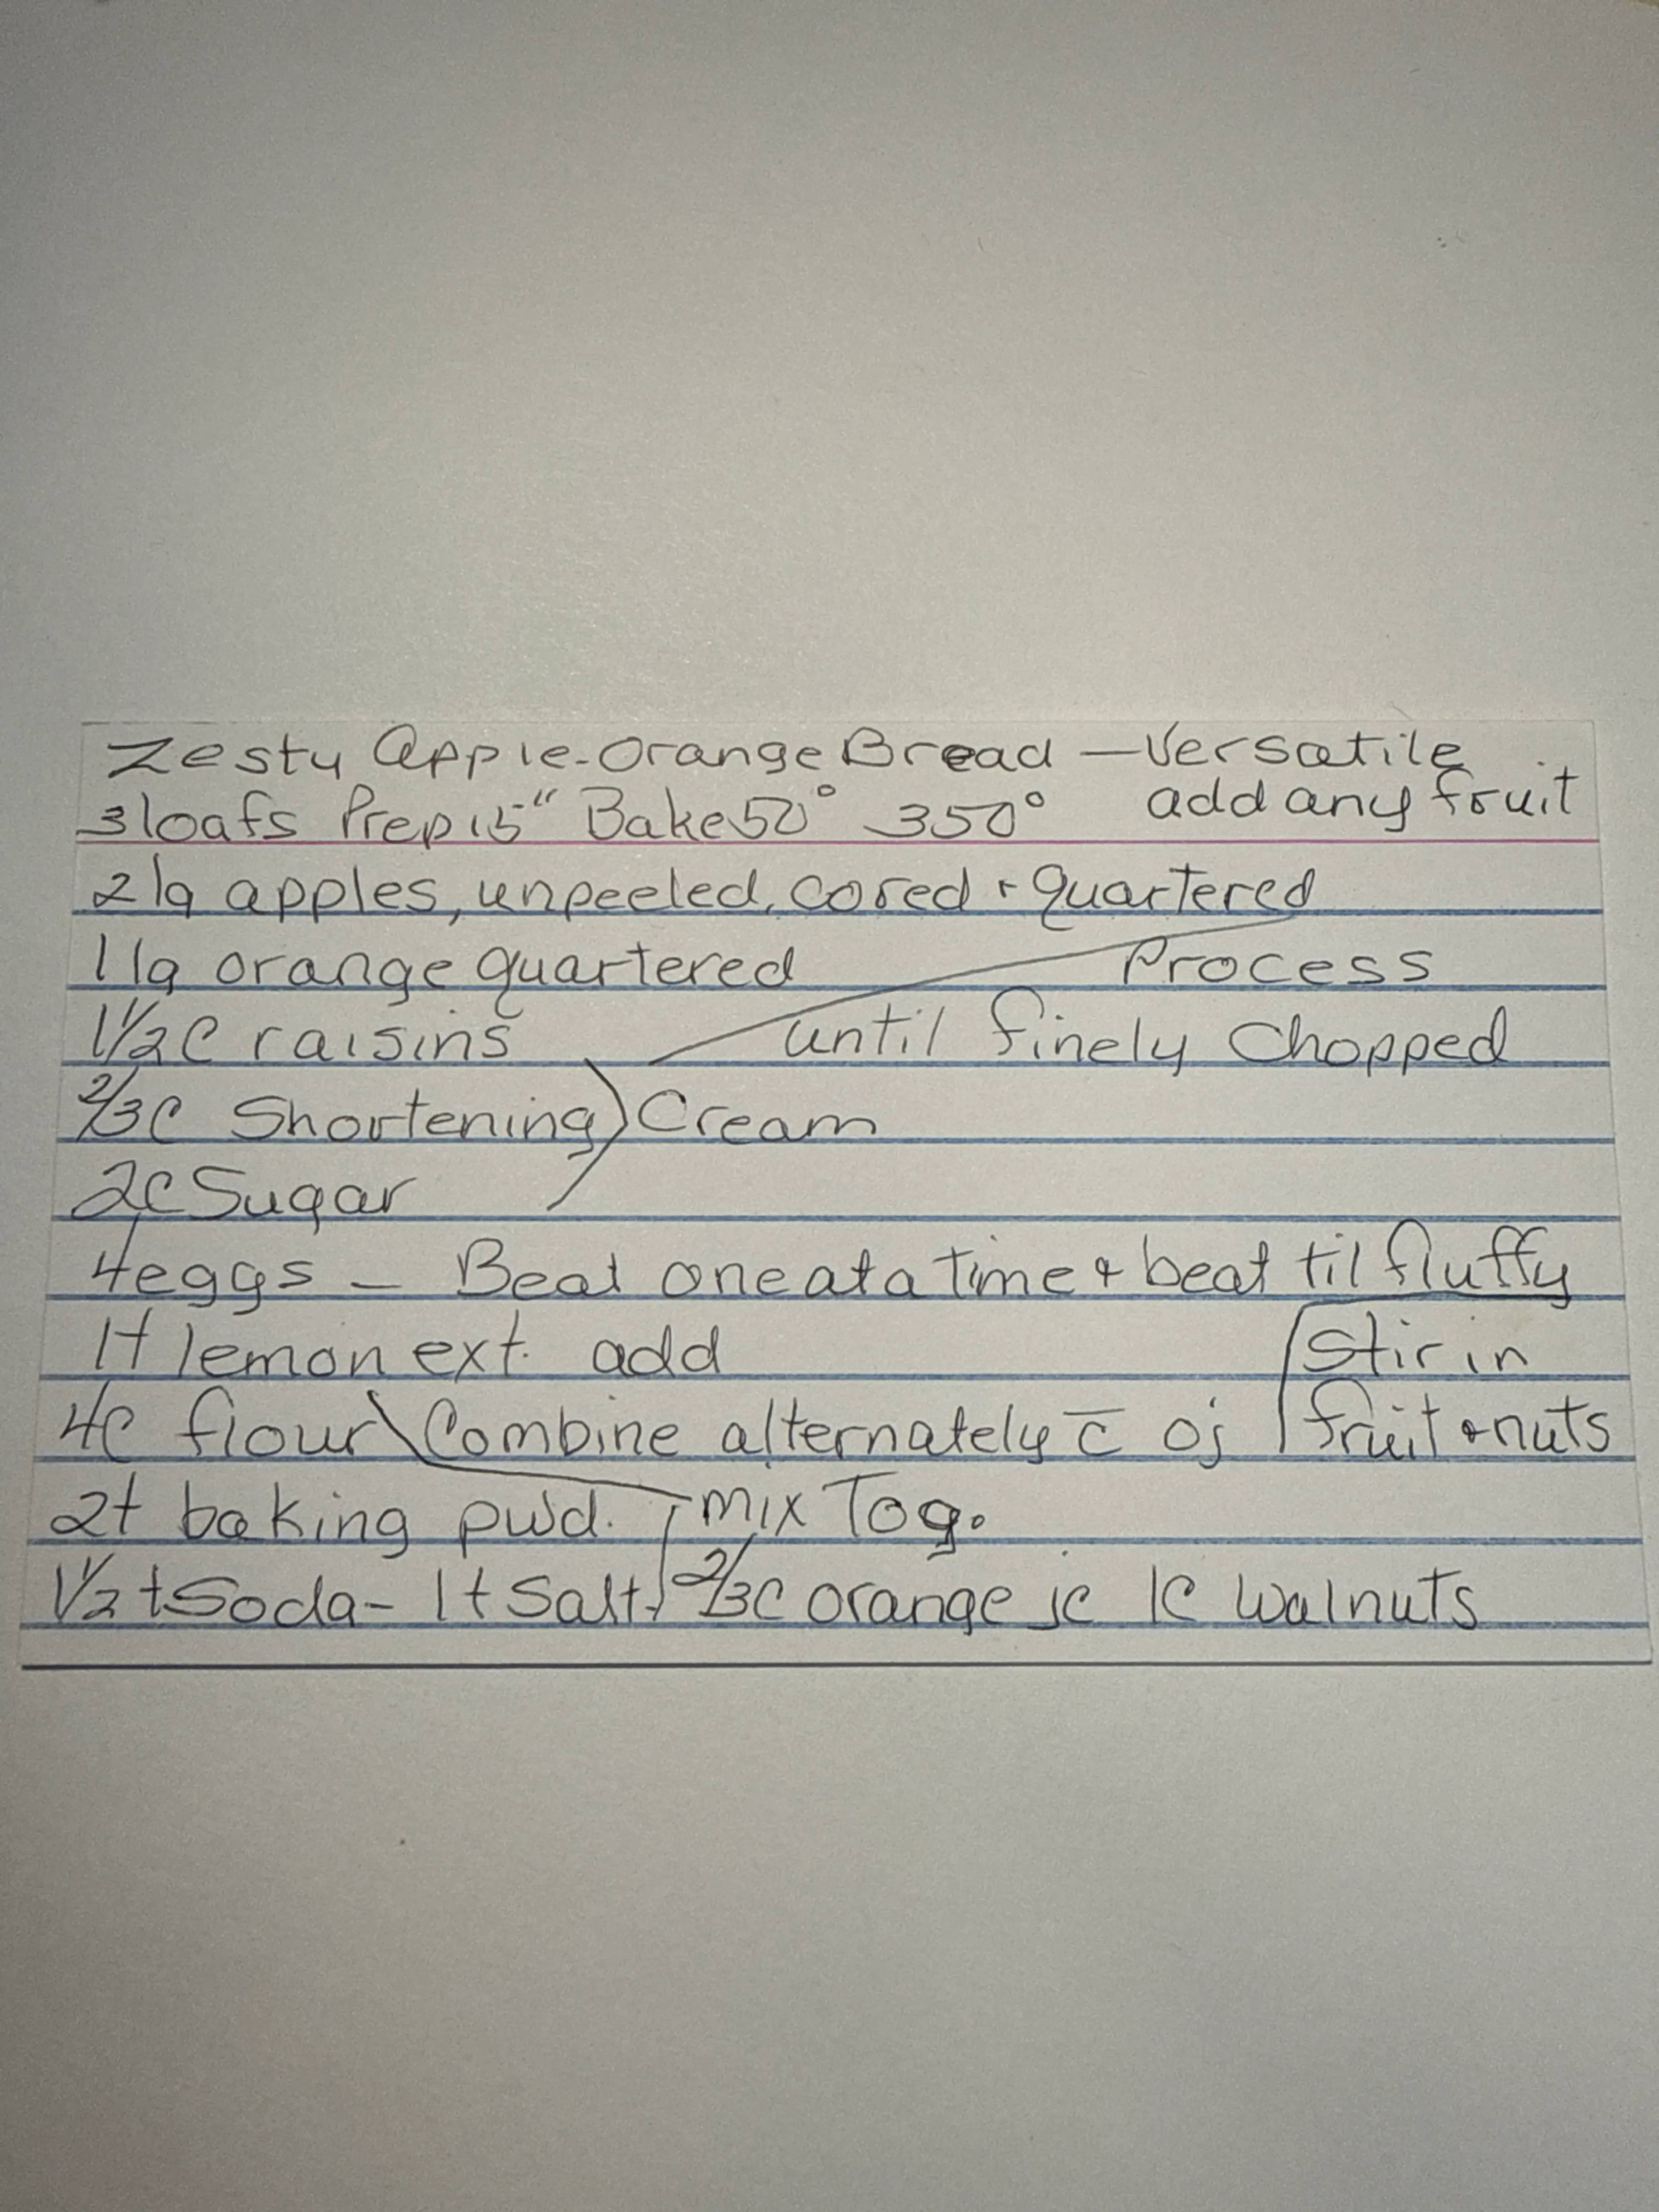 Zesty Apple-Orange Bread — Versatile
3 loafs Prep 15" Bake 50° 350° add any fruit
2 lg apples, unpeeled, cored + quartered
1 lg orange quartered Process
1 1/2 C raisins until finely Chopped
2/3 C Shortening ) Cream
2 C Sugar
4 eggs — Beat one at a Time & beat til fluffy
1 t lemon ext. add Stir in
4 C flour Combine alternately c̅ oj fruit & nuts
2 t baking pwd. mix Tog.
1 1/2 t Soda - 1 t Salt 2/3 C orange jc 1 C Walnuts